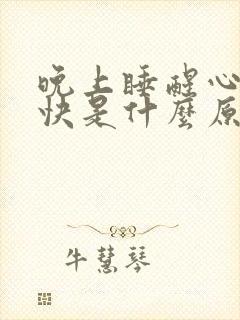 晚上睡醒心
快是什麼原
牛慧琴